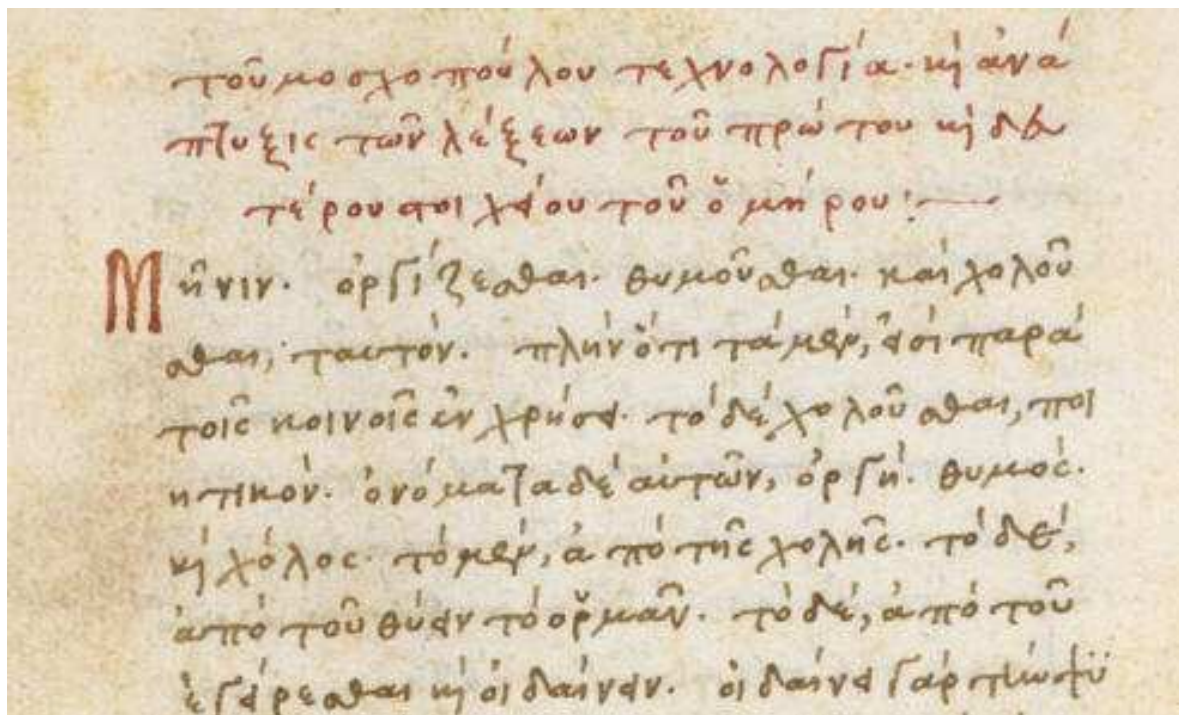 τοῦ μοσχοπούλου τεχνολογία· κὶ ἀνά
πτυξις τῶν λέξεων τοῦ πρώτου κὶ δευ
τέρου στοιχείου τοῦ ὁμήρου:—
Μῆνιν· ὀργίζεσθαι· θυμοῦσθαι· καὶ χολοῦ
σθαι, ταυτόν. πλὴν ὅτι τὰ μὲν, εἰσὶ παρὰ
τοῖς κοινοῖς ἐν χρήσει· τὸ δὲ χολοῦσθαι, ποι
ητικόν. ὀνόματα δὲ αὐτῶν, ὀργή. θυμός.
κὶ χόλος. τὸ μὲν, ἀπὸ τῆς χολῆς. τὸ δέ,
ἀπὸ τοῦ θύειν τὸ ὁρμᾶν. τὸ δέ, ἀπὸ τοῦ
ἐγείρεσθαι κὶ οἰδαίνειν. οἰδαίνει γὰρ τὴν